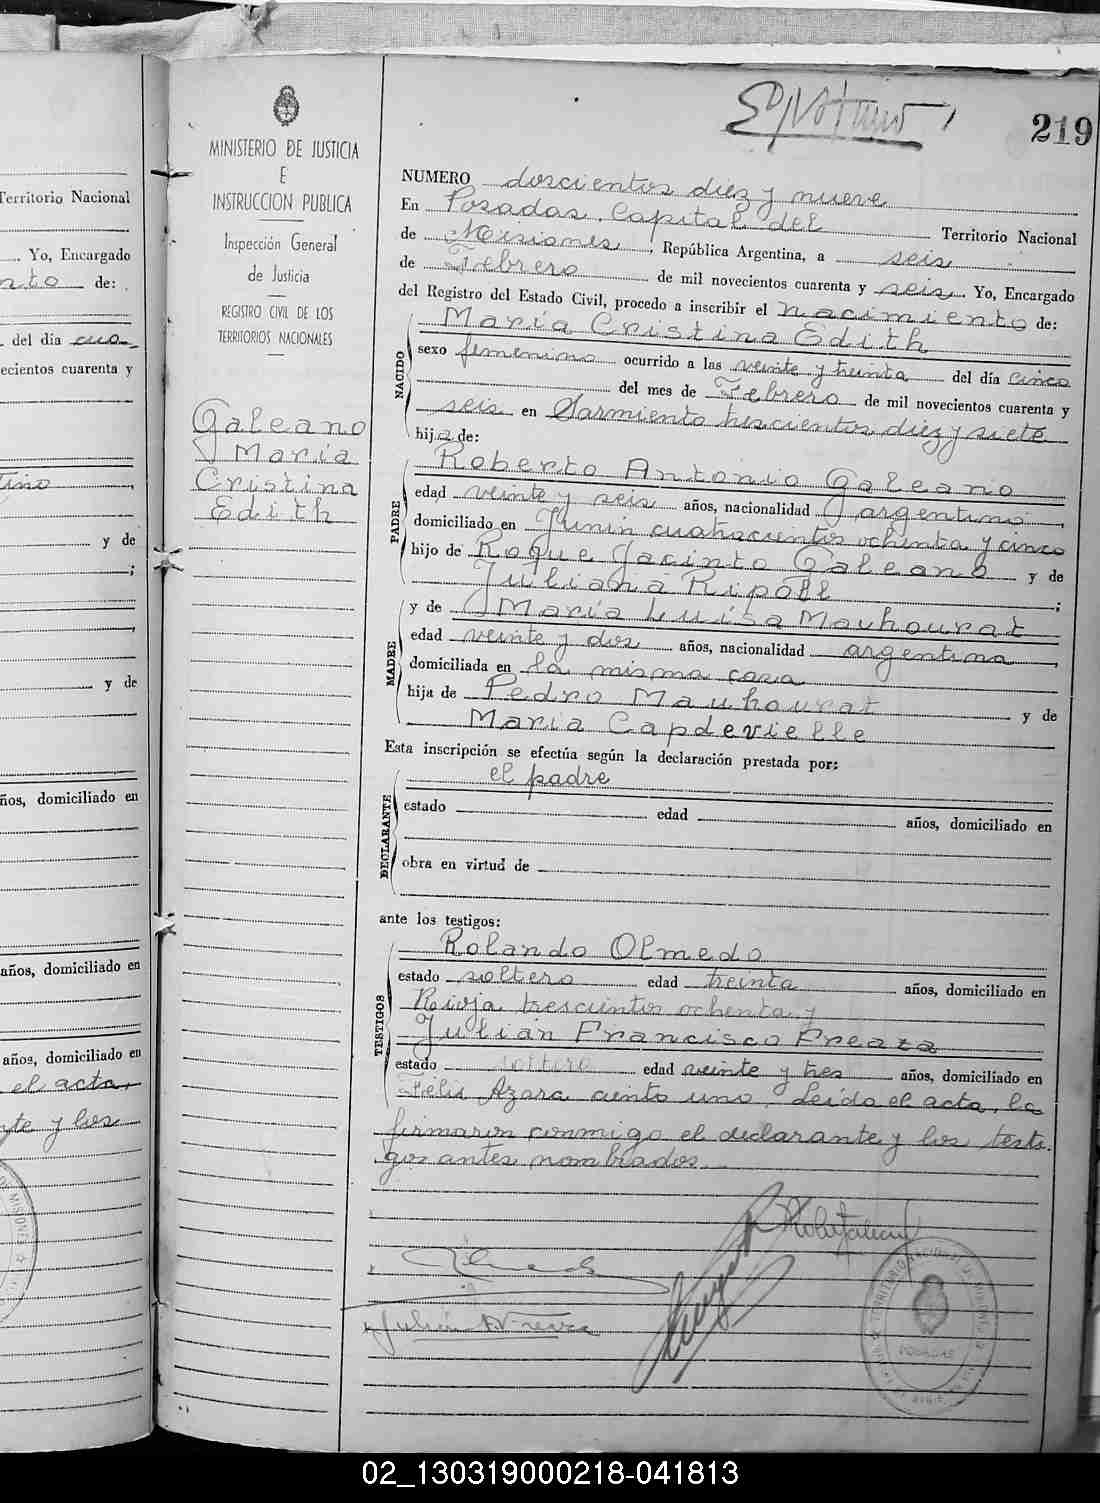 Territorio Nacional
Yo, Encargado
de:
del día
ecientos cuarenta y
y de
;
y de
ños, domiciliado en
años, domiciliado en
años, domiciliado en
el acta,
y los
MINISTERIO DE JUSTICIA
E
INSTRUCCION PUBLICA
Inspección General
de Justicia
REGISTRO CIVIL DE LOS
TERRITORIOS NACIONALES
Galeano
María
Cristina
Edith
219
NUMERO doscientos diez y nueve
En Posadas, Capital del Territorio Nacional
de Misiones, República Argentina, a seis
de Febrero de mil novecientos cuarenta y seis Yo, Encargado
del Registro del Estado Civil, procedo a inscribir el nacimiento de:
NACIDO
María Cristina Edith
sexo femenino ocurrido a las veinte y treinta del día cinco
del mes de Febrero de mil novecientos cuarenta y
seis en Sarmiento trescientos diez y siete
hija de:
PADRE
Roberto Antonio Galeano
edad veinte y seis años, nacionalidad argentino,
domiciliado en Junín cuatrocientos ochenta y cinco
hijo de Roque Jacinto Galeano y de
Juliana Ripoll ;
MADRE
y de María Luisa Mauhourat
edad veinte y dos años, nacionalidad argentina,
domiciliada en la misma casa
hija de Pedro Mauhourat y de
María Capdevielle
Esta inscripción se efectúa según la declaración prestada por:
DECLARANTE
el padre
estado edad años, domiciliado en
obra en virtud de
ante los testigos:
TESTIGOS
Rolando Olmedo
estado soltero edad treinta años, domiciliado en
Rioja trescientos ochenta y
Julián Francisco Freaza
estado soltero edad veinte y tres años, domiciliado en
Félix Azara ciento uno. Leída el acta, la
firmaron conmigo el declarante y los testi-
gos antes nombrados.
POSADAS
02_130319000218-041813